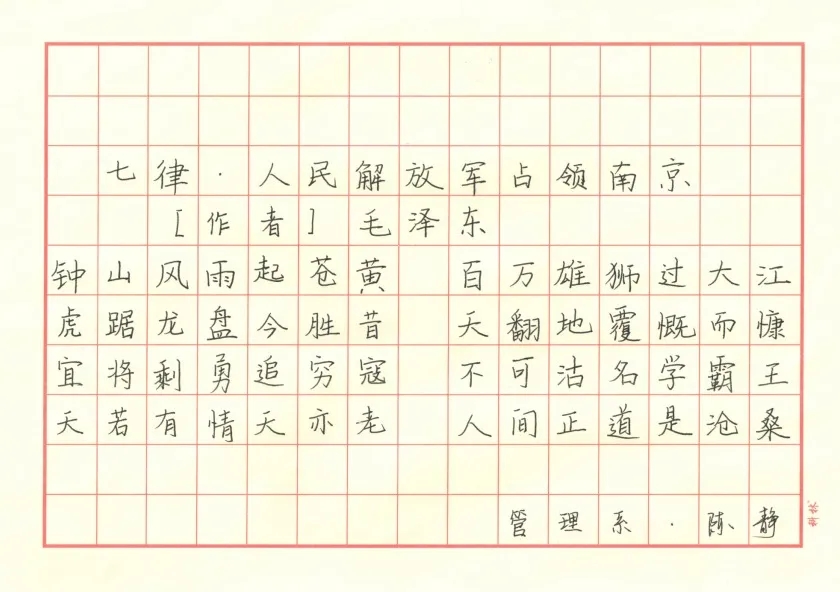 七律·人民解放军占领南京
[作者]毛泽东
钟山风雨起苍黄 百万雄狮过大江
虎踞龙盘今胜昔 天翻地覆慨而慷
宜将剩勇追穷寇 不可沽名学霸王
天若有情天亦老 人间正道是沧桑
管理系·陈静